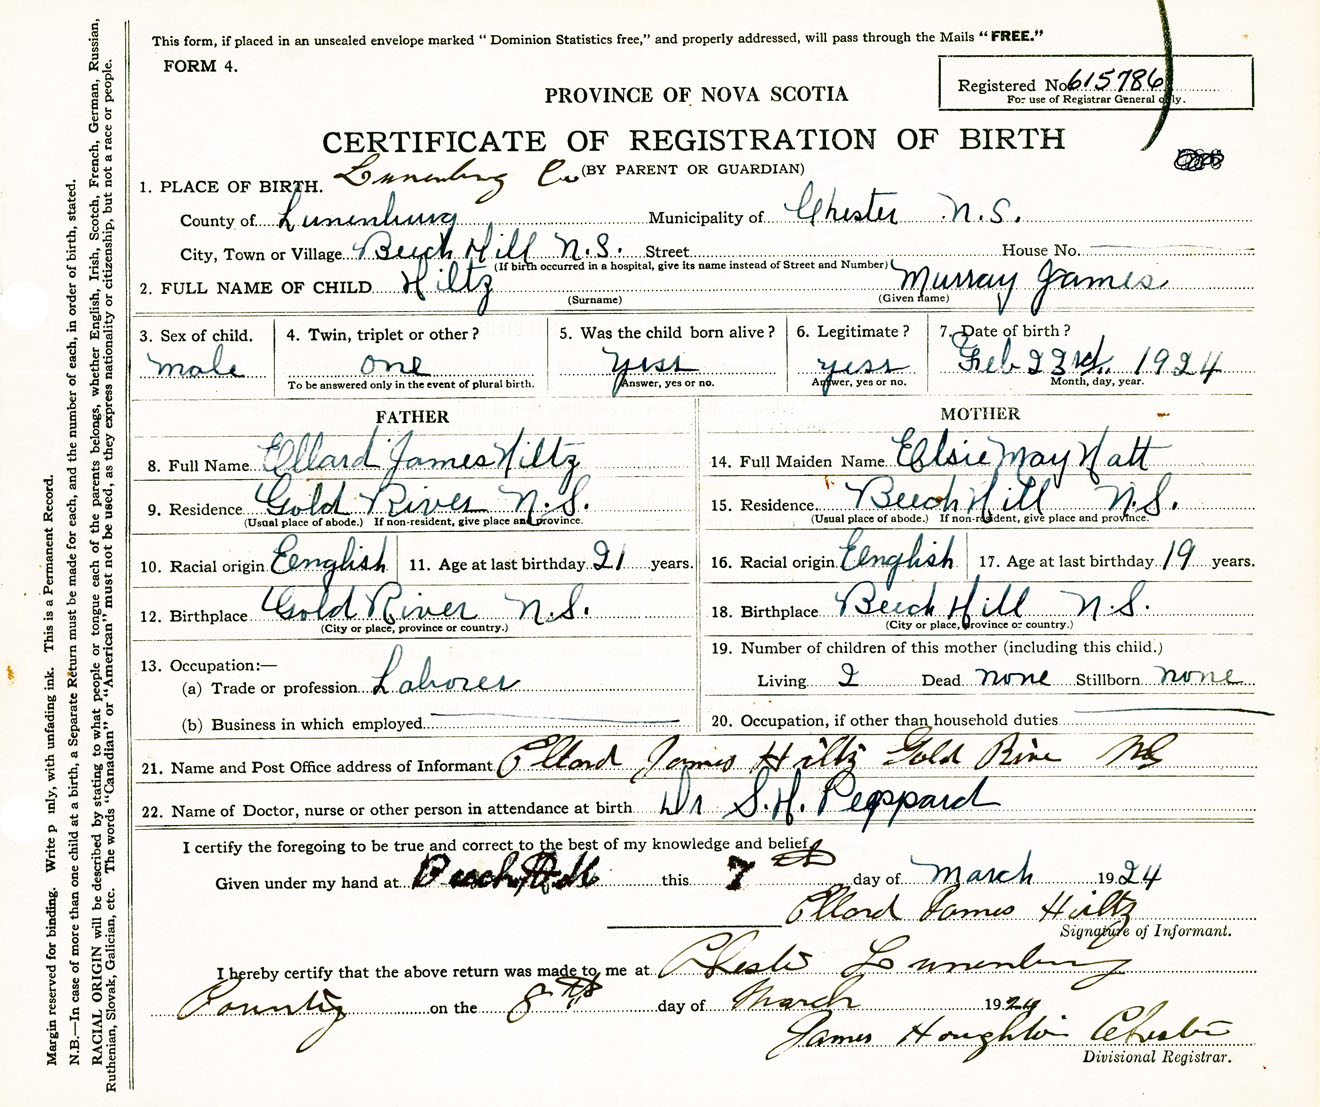 This form, if placed in an unsealed envelope marked " Dominion Statistics free," and properly addressed, will pass through the Mails "FREE."
FORM 4.
Registered No. 615786
For use of Registrar General only.
PROVINCE OF NOVA SCOTIA
CERTIFICATE OF REGISTRATION OF BIRTH
(BY PARENT OR GUARDIAN)
Lunenburg Co
1. PLACE OF BIRTH.
County of Lunenburg Municipality of Chester N.S.
City, Town or Village Beech Hill N.S. Street House No.
(If birth occurred in a hospital, give its name instead of Street and Number)
2. FULL NAME OF CHILD Hiltz Murray James
(Surname) (Given name)
3. Sex of child. 4. Twin, triplet or other ? 5. Was the child born alive ? 6. Legitimate ? 7. Date of birth ?
male one yess yess Feb 23rd. 1924
To be answered only in the event of plural birth. Answer, yes or no. Answer, yes or no. Month, day, year.
FATHER MOTHER
8. Full Name Ellard James Hiltz 14. Full Maiden Name Elsie May Hatt
9. Residence Gold River N.S. 15. Residence Beech Hill N.S.
(Usual place of abode.) If non-resident, give place and province. (Usual place of abode.) If non-resident, give place and province.
10. Racial origin Eenglish 11. Age at last birthday 21 years. 16. Racial origin Eenglish 17. Age at last birthday 19 years.
12. Birthplace Gold River N.S. 18. Birthplace Beech Hill N.S.
(City or place, province or country.) (City or place, province or country.)
13. Occupation:— 19. Number of children of this mother (including this child.)
(a) Trade or profession Laborer Living 2 Dead none Stillborn none
(b) Business in which employed 20. Occupation, if other than household duties
21. Name and Post Office address of Informant Ellard James Hiltz Gold River NS
22. Name of Doctor, nurse or other person in attendance at birth Dr S.H. Peppard
I certify the foregoing to be true and correct to the best of my knowledge and belief.
Given under my hand at Beech Hill this 7th day of March 1924
Ellard James Hiltz
Signature of Informant.
I hereby certify that the above return was made to me at Chester Lunenburg
County on the 8th day of March 1924
James Houghton Chester
Divisional Registrar.
Margin reserved for binding. Write p nly, with unfading ink. This is a Permanent Record.
N.B.—In case of more than one child at a birth, a Separate Return must be made for each, and the number of each, in order of birth, stated.
RACIAL ORIGIN will be described by stating to what people or tongue each of the parents belongs, whether English, Irish, Scotch, French, German, Russian,
Ruthenian, Slovak, Galician, etc. The words "Canadian" or "American" must not be used, as they express nationality or citizenship, but not a race or people.